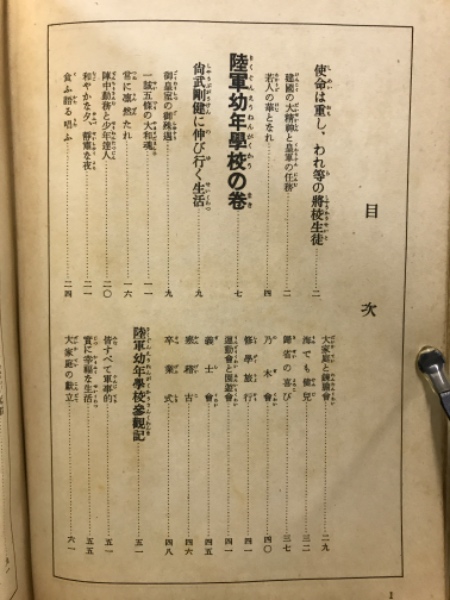 目次
使命は重し、われ等の將校生徒……二
建國の大精神と皇軍の任務……二
若人の華となれ……四
陸軍幼年學校の巻……七
尚武剛健に伸び行く生活……九
御皇室の御殊遇……九
一誠五條の大和魂……一一
常に凛然たれ……一六
陣中勤務と少年達人……二〇
和やかな夕、靜寂な夜……二一
食ふ語る唱ふ……二四
大家庭と訓育……二九
海でも健兒……三二
歸省の喜び……三七
乃木會……四〇
修學旅行……四一
運動會と園遊會……四一
義士會……四五
寒稽古……四六
卒業式……四八
陸軍幼年學校參觀記……五一
皆すべて軍事的……五一
實に幸福な生活……五五
大家庭の獻立……六一
1